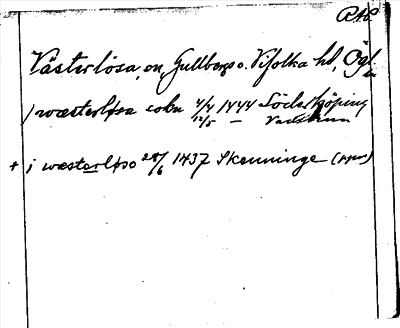 RAP.
Västerlösa, on, Gullbergs o. Vifolka hd, Ögl.
j wæsterløsa sokn 4/4 1444 Söderköping
12/5 — Vadstena
+ i wæsterløso 28/6 1437 Skenninge (